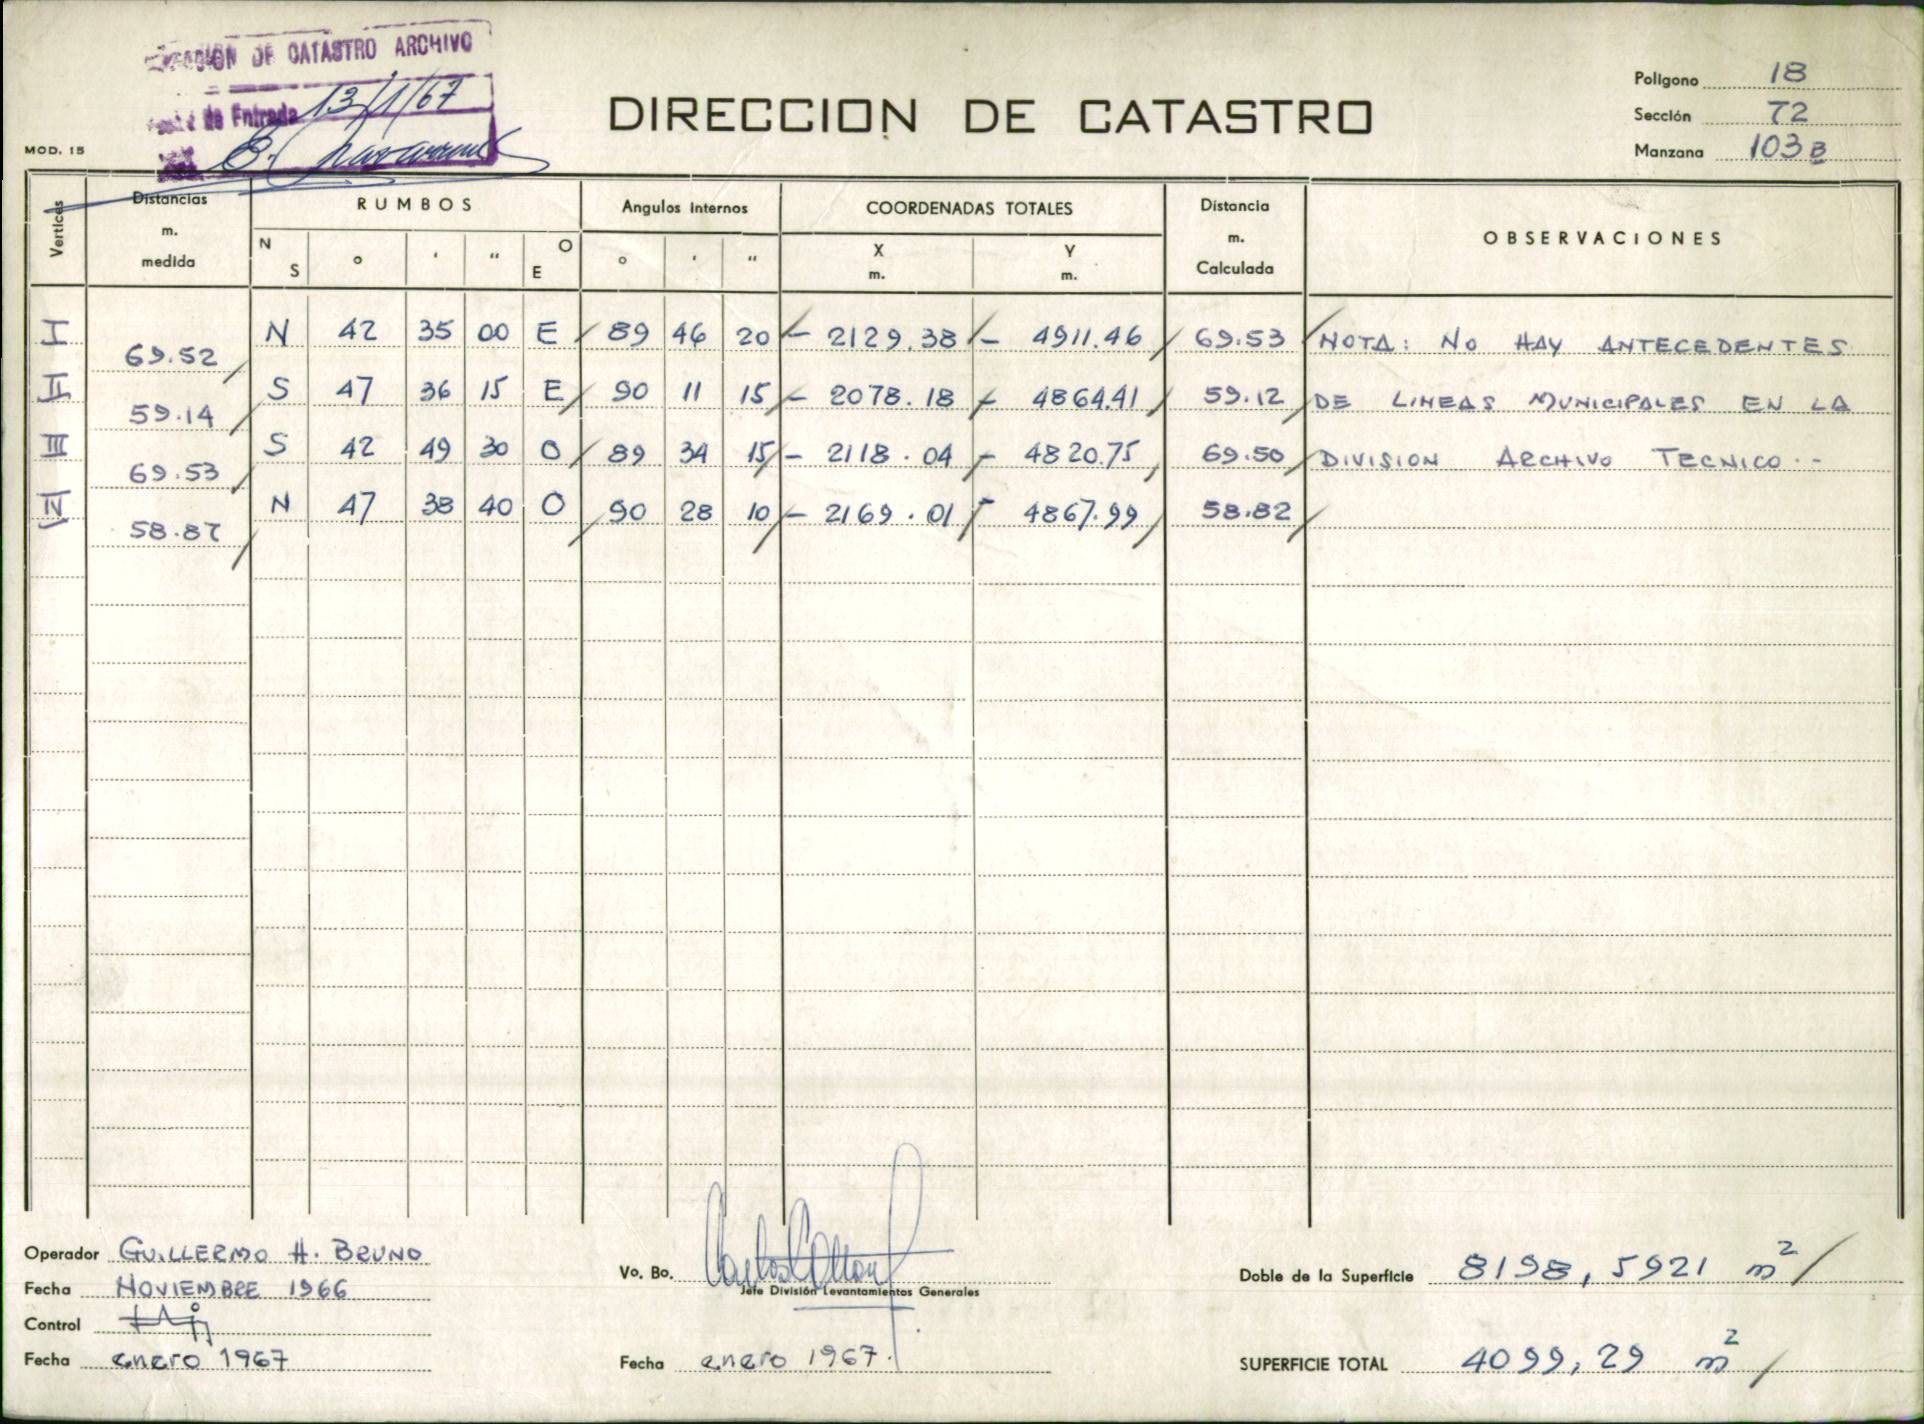 DE CATASTRO ARCHIVO
de Entrada 13/1/67
MOD. 15
DIRECCION DE CATASTRO
Poligono 18
Sección 72
Manzana 103 B
Vertices
Distancias m. medida
RUMBOS
N S ° ' " O E
Angulos Internos
° ' "
COORDENADAS TOTALES
X m. Y m.
Distancia m. Calculada
OBSERVACIONES
I 69.52 N 42 35 00 E 89 46 20 - 2129.38 - 4911.46 69.53 NOTA: NO HAY ANTECEDENTES
II 59.14 S 47 36 15 E 90 11 15 - 2078.18 - 4864.41 59.12 DE LINEAS MUNICIPALES EN LA
III 69.53 S 42 49 30 O 89 34 15 - 2118.04 - 4820.75 69.50 DIVISION ARCHIVO TECNICO.-
IV 58.87 N 47 38 40 O 90 28 10 - 2169.01 - 4867.99 58.82
Operador GUILLERMO H. BRUNO
Fecha NOVIEMBRE 1966
Control
Fecha enero 1967
Vo. Bo.
Jefe División Levantamientos Generales
Fecha enero 1967.
Doble de la Superficie 8198,5921 m²
SUPERFICIE TOTAL 4099,29 m²